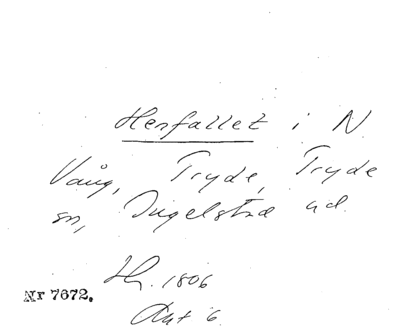 Henfallet i N
Vång, Tryde, Tryde
sn, Ingelstad hd.
H. 1806
Akt 6
Nr 7672.